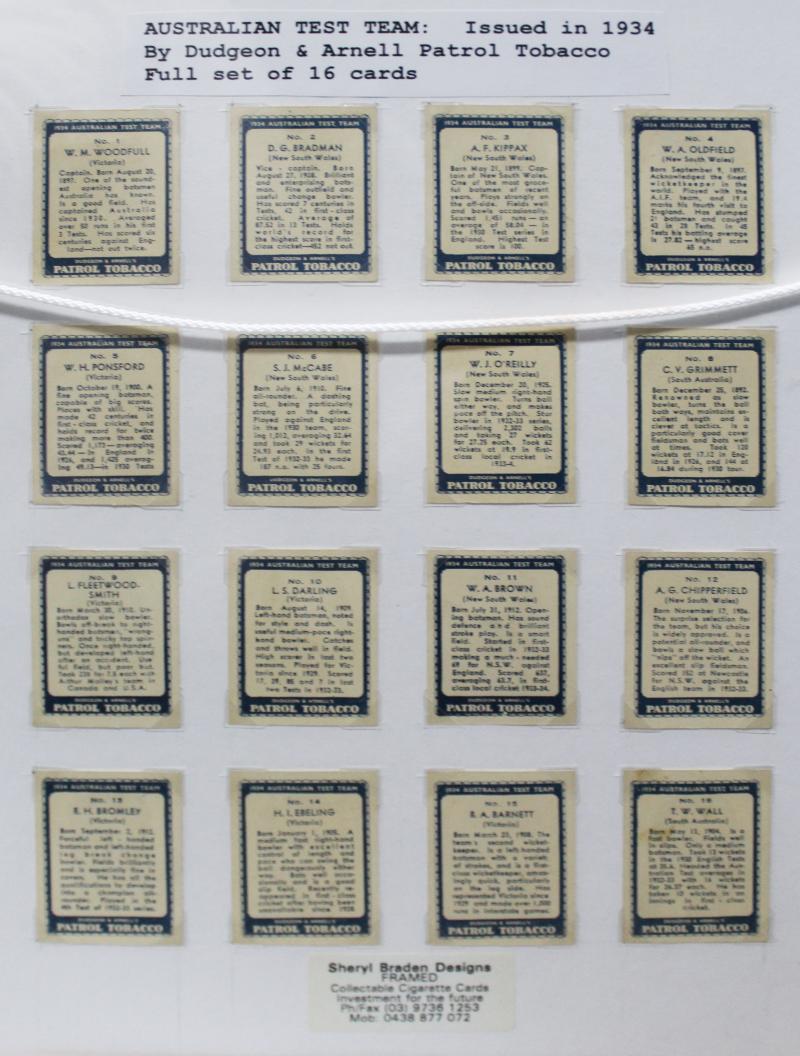 AUSTRALIAN TEST TEAM: Issued in 1934
By Dudgeon & Arnell Patrol Tobacco
Full set of 16 cards
1934 AUSTRALIAN TEST TEAM
No. 1
W. M. WOODFULL
(Victoria)
Captain. Born August 20,
1897. One of the sound-
est opening batsmen
Australia has known.
Is a good field. Has
captained Australia
since 1930. Averaged
over 50 runs in his first
3 Tests. Has scored six
centuries against Eng-
land—not out twice.
DUDGEON & ARNELL'S
PATROL TOBACCO
1934 AUSTRALIAN TEST TEAM
No. 2
D. G. BRADMAN
(New South Wales)
Vice-captain. Born
August 27, 1908. Brilliant
and enterprising bats-
man. Fine outfield and
useful change bowler.
Has scored 7 centuries in
Tests, 42 in first-class
cricket. Average of
in 13 Tests. Holds
world's record for
the highest score in first-
class cricket—452 not out.
DUDGEON & ARNELL'S
PATROL TOBACCO
1934 AUSTRALIAN TEST TEAM
No. 3
A. F. KIPPAX
(New South Wales)
Born May 21, 1899. Cap-
tain of New South Wales.
One of the most grace-
ful batsmen of recent
years. Plays strongly on
the off-side. Fields well
and bowls occasionally.
Scored 1,451 runs—
average of 58.04—in
the 1930 Test series in
England. Highest Test
score is 100.
DUDGEON & ARNELL'S
PATROL TOBACCO
1934 AUSTRALIAN TEST TEAM
No. 4
W. A. OLDFIELD
(New South Wales)
Born September 9, 1897.
Acknowledged the finest
wicketkeeper in the
world. Played with the
A.I.F. team, and
marks his fourth visit to
England. Has stumped
21 batsmen and caught
43 in 28 Tests. In 45
Tests his batting average
is 27.82—highest score
65 n.o.
DUDGEON & ARNELL'S
PATROL TOBACCO
1934 AUSTRALIAN TEST TEAM
No. 5
W. H. PONSFORD
(Victoria)
Born October 19, 1900. A
fine opening batsman,
capable of big scores.
Places with skill. Has
made 42 centuries in
first-class cricket, and
holds record for twice
making more than 400.
Scored 1,173—averaging
—in England in
1926, and 1,425 averag-
ing 49.13—in 1930 Tests
DUDGEON & ARNELL'S
PATROL TOBACCO
1934 AUSTRALIAN TEST TEAM
No. 6
S. J. McCABE
(New South Wales)
Born July 6, 1910. Fine
all-rounder. A dashing
bat, being particularly
strong on the drive.
Played against England
in the 1930 team, scor-
ing 1,012, averaging 32.64
and took 29 wickets for
24.93 each. In the first
Test of 1932-33 he made
187 n.o. with 25 fours.
DUDGEON & ARNELL'S
PATROL TOBACCO
1934 AUSTRALIAN TEST TEAM
No. 7
W. J. O'REILLY
(New South Wales)
Born December 20, 1905.
Slow medium right-hand
spin bowler. Turns ball
either way, and makes
pace off the pitch. Star
bowler in 1932-33 series,
delivering 2,302 balls
and taking 27 wickets
for 27.25 each. Took 62
wickets at 19.9 in first-
class local cricket in
1933-4.
DUDGEON & ARNELL'S
PATROL TOBACCO
1934 AUSTRALIAN TEST TEAM
No. 8
C. V. GRIMMETT
(South Australia)
Born December 25, 1892.
Renowned as slow
bowler, turns the ball
both ways, maintains ex-
cellent length and is
clever at tactics. Is a
particularly good cover
fieldsman and bats well
at times. Took 120
wickets at 17.12 in Eng-
land in 1926, and 144 at
16.84 during 1930 tour.
DUDGEON & ARNELL'S
PATROL TOBACCO
1934 AUSTRALIAN TEST TEAM
No. 9
L. FLEETWOOD-
SMITH
(Victoria)
Born March 30, 1910. Un-
orthodox slow bowler.
Bowls off-break to right-
handed batsmen, "wrong-
uns" and tricky top spin-
ners. Once right-handed,
but developed left-hand
after an accident. Use-
ful field, but poor bat.
Took 238 for 7.5 each with
Arthur Mailey's team in
Canada and U.S.A.
DUDGEON & ARNELL'S
PATROL TOBACCO
1934 AUSTRALIAN TEST TEAM
No. 10
L. S. DARLING
(Victoria)
Born August 14, 1909.
Left-hand batsman, noted
for style and dash. Is
useful medium-pace right-
hand bowler. Catches
and throws well in field.
High scorer in last two
seasons. Played for Vic-
toria since 1929. Scored
17, 39, 85 and 7 in last
two Tests in 1932-33.
DUDGEON & ARNELL'S
PATROL TOBACCO
1934 AUSTRALIAN TEST TEAM
No. 11
W. A. BROWN
(New South Wales)
Born July 31, 1912. Open-
ing batsman. Has sound
defence and brilliant
stroke play. Is a smart
field. Started in first-
class cricket in 1932-33
making a much-needed
69 for N.S.W. against
England. Scored 637,
averaging 63.7, in first-
class local cricket 1933-34.
DUDGEON & ARNELL'S
PATROL TOBACCO
1934 AUSTRALIAN TEST TEAM
No. 12
A. G. CHIPPERFIELD
(New South Wales)
Born November 17, 1906.
The surprise selection for
the team, but his choice
is widely approved. Is a
potential all-rounder, and
bowls a slow ball which
"nips" off the wicket. An
excellent slip fieldsman.
Scored 152 at Newcastle
for N.S.W. against the
English team in 1932-33.
DUDGEON & ARNELL'S
PATROL TOBACCO
1934 AUSTRALIAN TEST TEAM
No. 13
E. H. BROMLEY
(Victoria)
Born September 2, 1912.
Forceful left-handed
batsman and left-handed
leg break change
bowler. Fields brilliantly
and is especially fine in
covers. He has all the
qualifications to develop
into a champion all-
rounder. Played in the
4th Test of 1932-33 series.
DUDGEON & ARNELL'S
PATROL TOBACCO
1934 AUSTRALIAN TEST TEAM
No. 14
H. I. EBELING
(Victoria)
Born January 1, 1905. A
medium fast right-hand
bowler with excellent
control of length and
pace who can swing the
ball dangerously either
way. Bats well occa-
sionally and is a good
slip field. Recently re-
appeared in first-class
cricket after having been
unavailable since 1928
DUDGEON & ARNELL'S
PATROL TOBACCO
1934 AUSTRALIAN TEST TEAM
No. 15
B. A. BARNETT
(Victoria)
Born March 23, 1908. The
team's second wicket-
keeper. Is a left-handed
batsman with a variety
of strokes, and is a first-
class wicketkeeper, amaz-
ingly quick, particularly
on the leg side. Has
represented Victoria since
1929 and made over 1,500
runs in interstate games.
DUDGEON & ARNELL'S
PATROL TOBACCO
1934 AUSTRALIAN TEST TEAM
No. 16
T. W. WALL
(South Australia)
Born May 13, 1904. Is a
fast bowler. Fields well
in slips. Only a medium
batsman. Took 13 wickets
in the 1930 English Tests
at 35.6. Headed the Aus-
tralian Test averages in
1932-33 with 16 wickets
for 26.37 each. He has
taken 10 wickets in an
innings in first-class
cricket.
DUDGEON & ARNELL'S
PATROL TOBACCO
Sheryl Braden Designs
FRAMED
Collectable Cigarette Cards
Investment for the future
Ph/Fax (03) 9736 1253
Mob: 0438 877 072